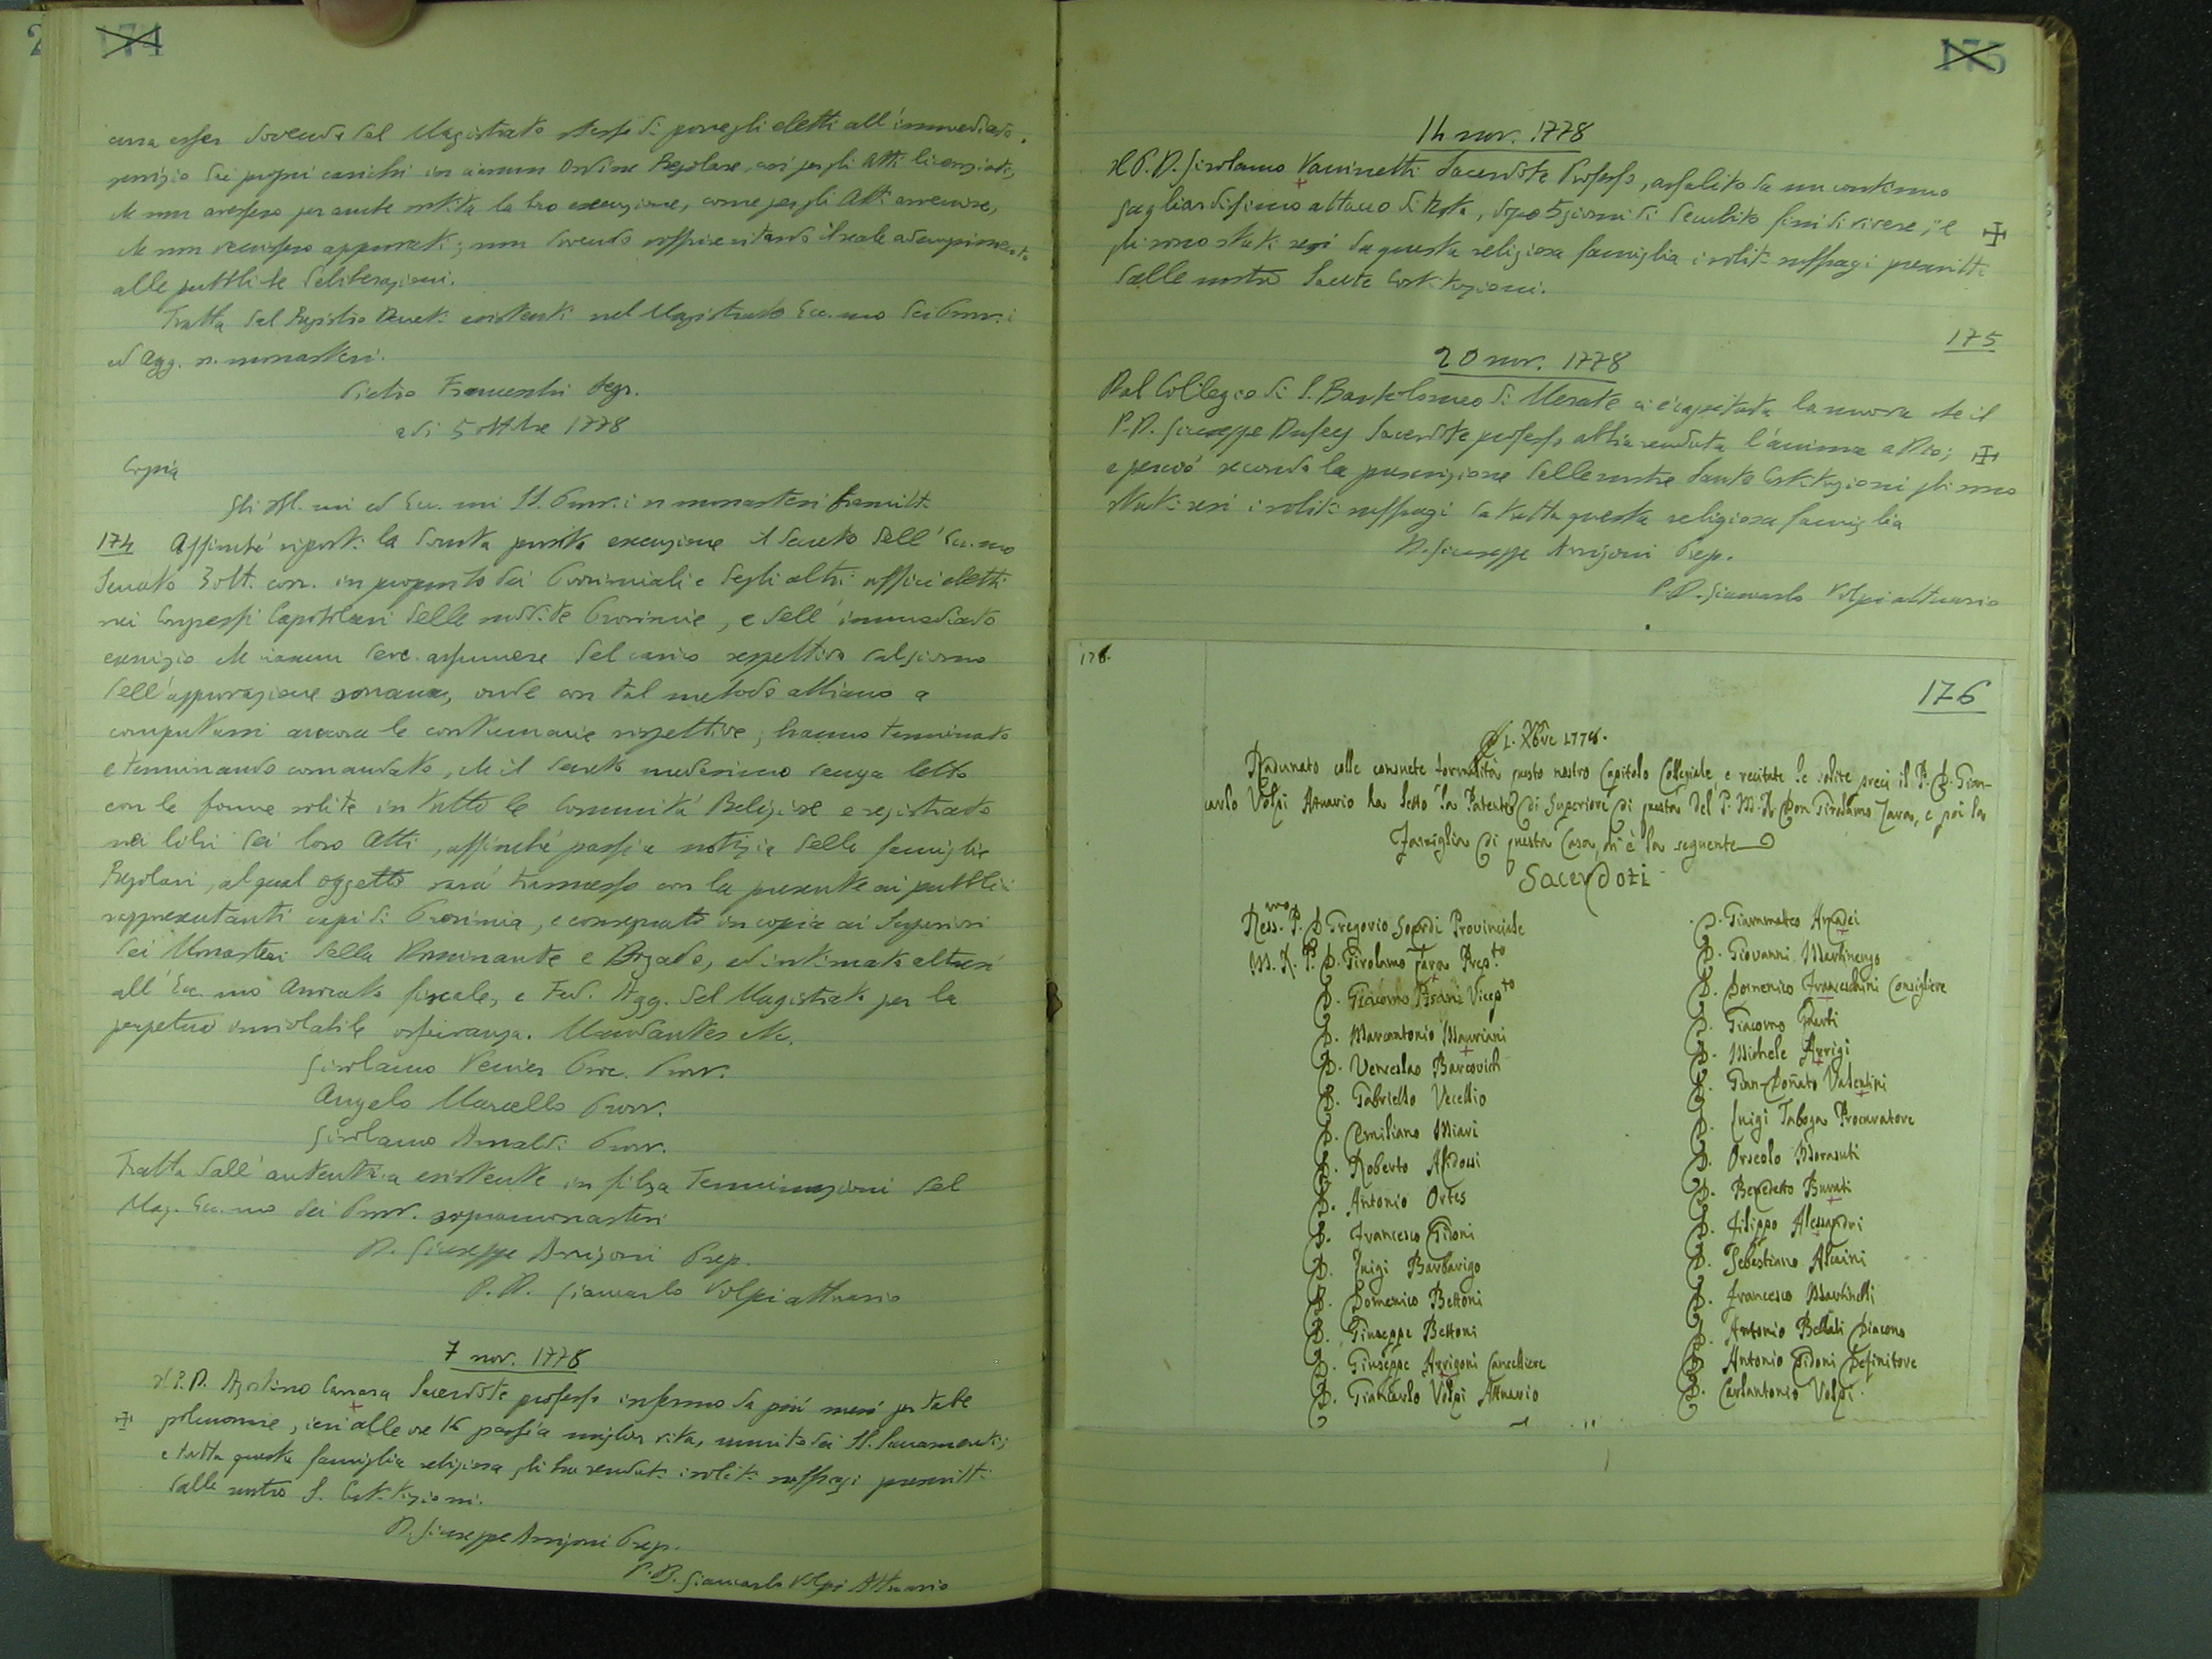 174
cura esser dovendo dal Magistrato stesso di poner gli eletti all'immediato
servizio dei propri carichi in ciascun Ordine Regolare, così per gli Atti licenziati,
che non avessero per anche sortita la loro esecuzione, come per gli Atti
che non venissero approvati; non dovendo il reale adempimento
alle pubbliche deliberazioni.
Tratta dal Registro Decreti esistenti nel Magistrato Ecc.mo dei Provv.i
ed Agg. s. monasteri.
Pietro Franceschi Segr.
adi 5 ottbre 1778
Copia
Gli Ill.mi ed Ecc.mi SS. Provv.i s. monasteri
174 Affinché riporti la dovuta pronta esecuzione il decreto dell'Ecc.mo
Senato 3 ott. corr. in proposito dei Provinciali e degli altri uffici eletti
nei Congressi Capitolari delle suddite Provincie, e dell'immediato
esercizio che ciascun deve assumere del carico respettivo dal giorno
dell'approvazione sovrana, onde con tal metodo abbiano a
computarsi ancora le contumacie rispettive; hanno terminato
e terminando comandato, che il decreto medesimo venga letto
con le forme solite in tutte le Comunità Religiose e registrato
nei libri dei loro Atti, affinché passi a notizia delle famiglie
Regolari, al qual oggetto sarà trasmesso con la presente ai pubblici
rappresentanti capi di Provincia, e consegnato in copia ai Superiori
dei Monasteri della Dominante e Dogado, ed intimato altresì
all'Ecc.mo Avvocato fiscale, e Fed. Agg. del Magistrato per la
perpetua inviolabile osservanza. Mandantes etc.
Girolamo Venier Proc. Provv.
Angelo Marcello Provv.
Girolamo Arnaldi Provv.
Tratta dall'autentica esistente in filza Terminazioni del
Mag. Ecc.mo dei Provv. sopramonasteri
D. Giuseppe Arrigoni Prep.
P. D. Giancarlo Volpi attuario
7 nov. 1778
Il P. D. Agostino Carrara Sacerdote professo infermo da più mesi per tabe
polmonare, ieri alle ore 16 passò a miglior vita, munito dei SS. Sacramenti;
e tutta questa famiglia religiosa gli ha rendute i soliti suffragi prescritti
dalle nostre S. Costituzioni.
D. Giuseppe Arrigoni Prep.
P. D. Giancarlo Volpi Attuario
175
14 nov. 1778
Il P. D. Girolamo Vaninetti Sacerdote Professo, assalito da un continuo
gagliardissimo attacco di testa, dopo 5 giorni di decubito finì di vivere; e
gli sono stati resi da questa religiosa famiglia i soliti suffragi prescritti
dalle nostre Sante Costituzioni.
175
20 nov. 1778
Dal Collegio di S. Bartolomeo di Merate ci è capitata la nuova che il
P. D. Giuseppe Dufey Sacerdote professo abbia renduta l'anima a Dio;
e perciò secondo la prescrizione delle nostre Sante Costituzioni gli sono
stati resi i soliti suffragi da tutta questa religiosa famiglia
D. Giuseppe Arrigoni Prep.
P. D. Giancarlo Volpi attuario
176.
176
1. Xbre 1778.
Radunato colle consuete formalità questo nostro Capitolo Collegiale, e recitate le solite preci il P. D. Gian-
carlo Volpi Attuario ha letto la Patente di Superiore di questa del P. M. R. Don Girolamo Zara, e poi la
Famiglia di questa Casa, ch'è la seguente
Sacerdozi
Ress.mo P. D. Gregorio Sordi Provinciale
M. R. P. D. Girolamo Zara Prep.to
D. Giacomo Pisani Vicep.to
D. Marcantonio Mauriani
D. Venceslao Barcovich
D. Gabriello Vecellio
D. Emiliano Miari
D. Roberto Alidossi
D. Antonio Ortes
D. Francesco Gidoni
D. Luigi Barbarigo
D. Domenico Bettoni
D. Giuseppe Bettoni
D. Giuseppe Arrigoni Cancelliere
D. Giancarlo Volpi Attuario
D. Giammateo Amadei
D. Giovanni Martinengo
D. Domenico Franceschini Consigliere
D. Giacomo
D. Michele Arrigi
D. Gian-Donato Valentini
D. Luigi Taboga Procuratore
D. Orseolo Morasuti
D. Benedetto Burati
D. Filippo Alessandri
D. Sebastiano Alcaini
D. Francesco Martinelli
D. Antonio Bellati Diacono
D. Antonio Gidoni Definitore
D. Carlantonio Volpi.